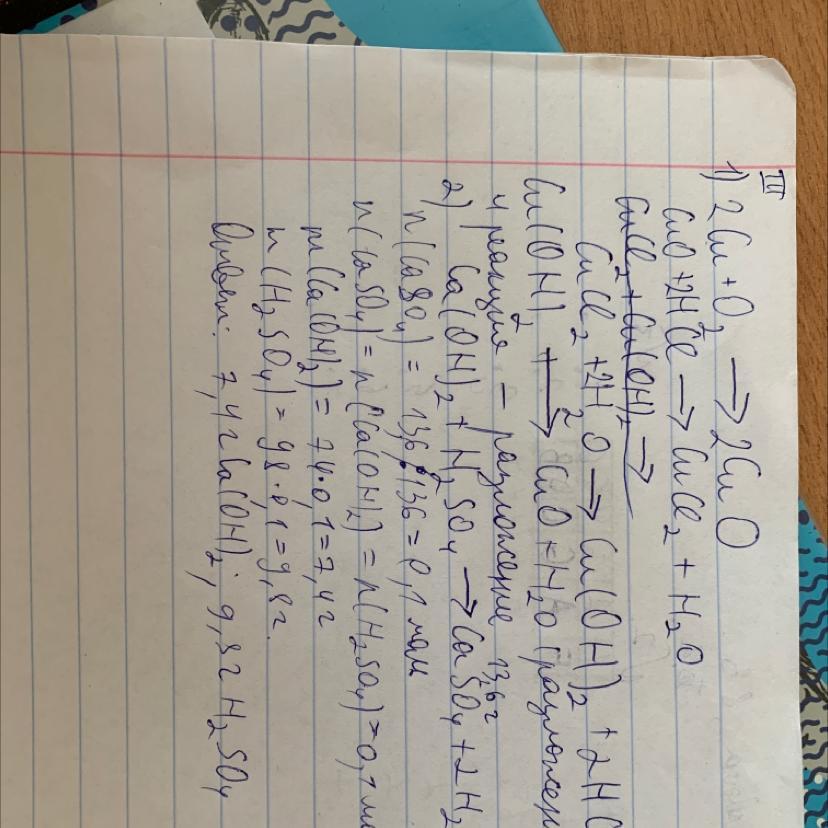 III
1) 2Cu + O2 → 2CuO
CuO + 2HCl → CuCl2 + H2O
CuCl2 + Cu(OH)2 →
CuCl2 + 2H2O → Cu(OH)2 + 2HC
Cu(OH)2 → CuO + H2O (разложен
4 реакция – разложение
13,6г
2) Ca(OH)2 + H2SO4 → CaSO4 + 2H2
n(CaSO4) = 13,6 : 136 = 0,1 моль
n(CaSO4) = n(Ca(OH)2) = n(H2SO4) = 0,1 м
m(Ca(OH)2) = 74·0,1 = 7,4г
m(H2SO4) = 98·0,1 = 9,8г.
Ответ: 7,4г Ca(OH)2; 9,8г H2SO4